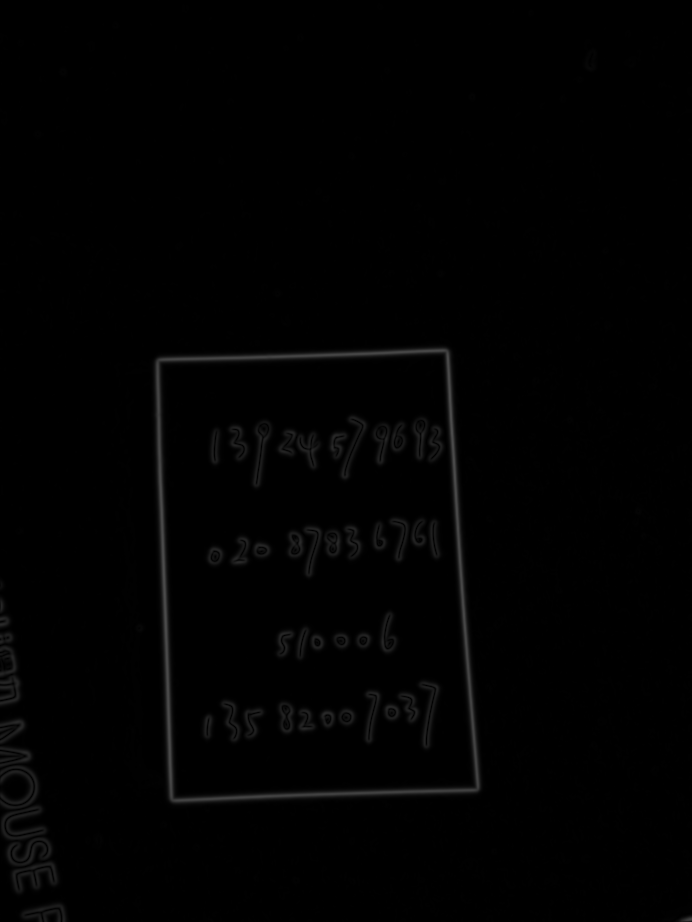 139 2457 9693
020 8783 6761
510006
135 8200 7037
MOUSE